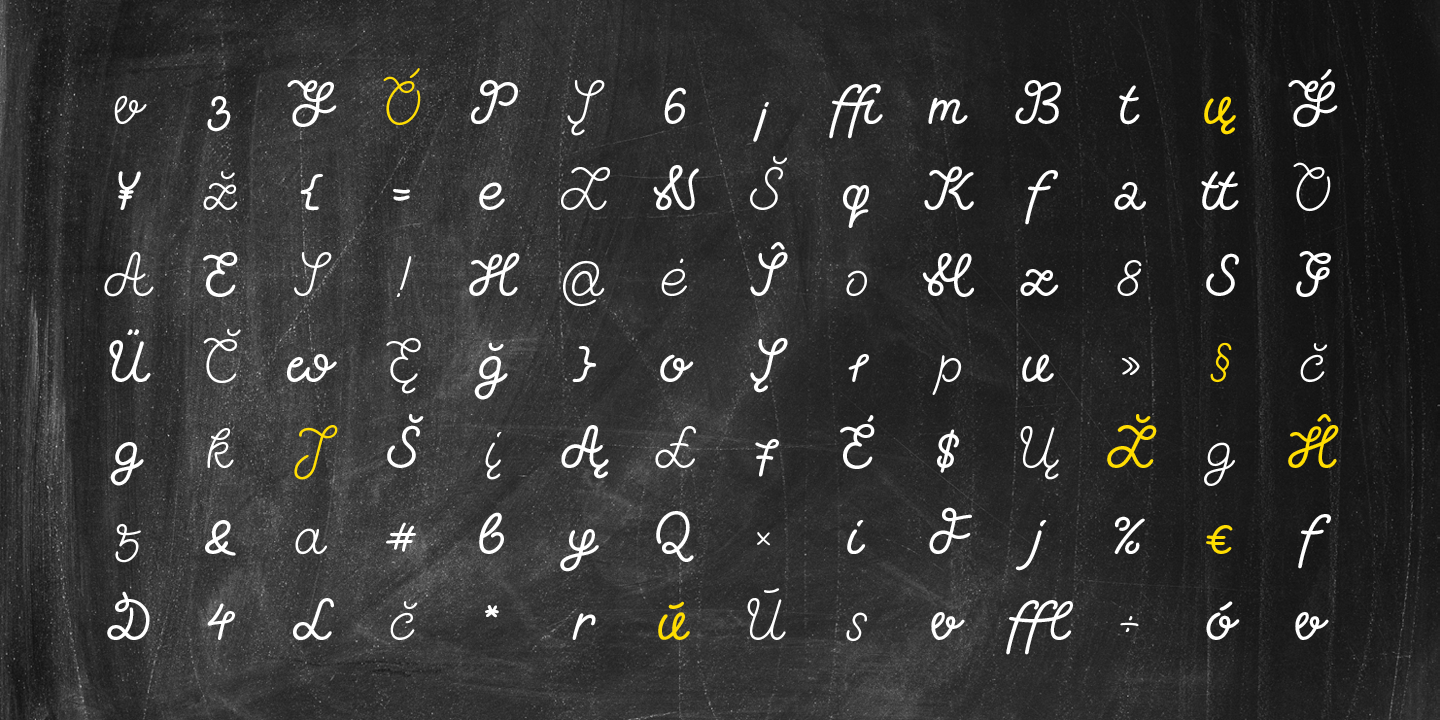 v 3 Y Ó P Į 6 j ffi m B t ų Ý
¥ ž { = e Z N Š φ K f a tt O
A E I ! H @ ė Ŝ o M z 8 S G
Ü Č w Ę ğ } o Į 1 p u » § č
g k J Š į Ą £ 7 É $ Ų Ž g Ĥ
5 & a # b y Q × i F j % € f
D 4 L č * r ū Ū s v ffl ÷ ó v